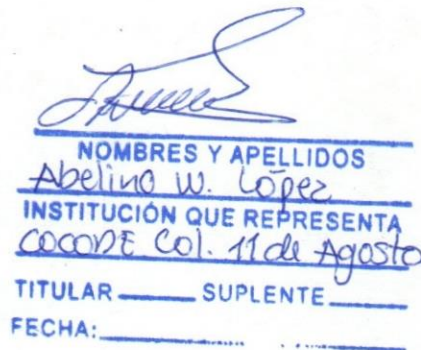 NOMBRES Y APELLIDOS
Abelino W. López
INSTITUCIÓN QUE REPRESENTA
COCODE Col. 11 de Agosto
TITULAR SUPLENTE
FECHA: